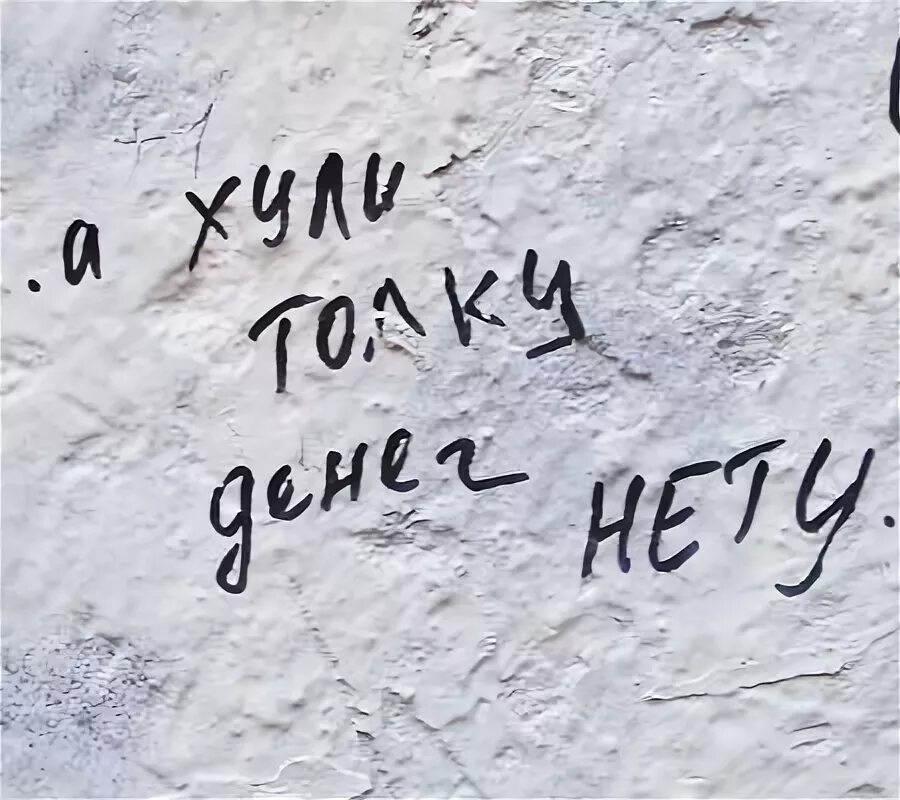 .а хули
толку
денег НЕТУ.